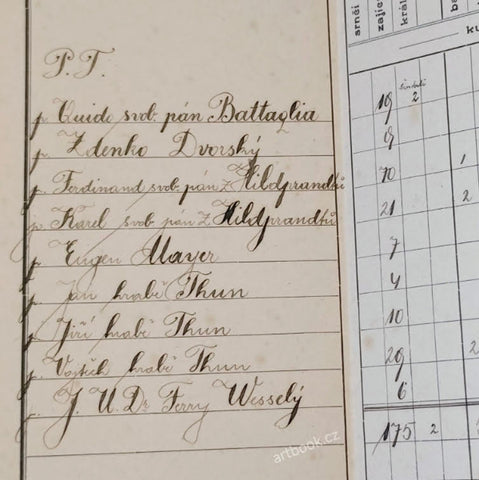 srnčí
zajíc
král
ba
ku
P. T.
šoulačka
p. Quido svob. pán Battaglia 19 2
p. Zdenko Dvorský 9
p. Ferdinand svob. pán z Hildprandtů 70 1
p. Karel svob. pán z Hildprandtů 21 2
p. Eugen Mayer 7
p. Jan hrabě Thun 4
p. Jiří hrabě Thun 10
p. Vojtěch hrabě Thun 29 2
p. J. U. Dr Ferry Wesselý 6
175 2
artbook.cz